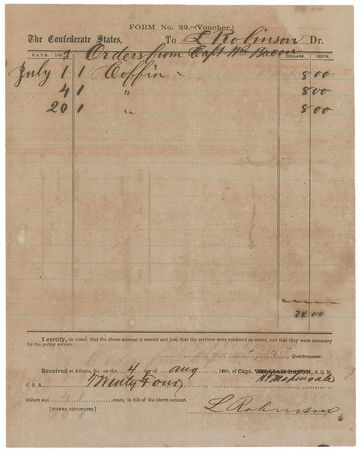 FORM No. 22—(Voucher.)
The Confederate States, To L Robinson Dr.
DATE. 1863 Orders from Capt Wm Bacon DOLLARS. CENTS.
July 1 1 Coffin 8 00
4 1 " 8 00
20 1 " 8 00
24 00
I certify, on honor, that the above account is correct and just; that the services were rendered as stated, and that they were necessary
for the public service.
Quartermaster.
Received at Atlanta, Ga. on the 4 day of Aug 1863, of Capt. WILLIAM BACON, A. Q. M.
C. S. A. Twenty Four
dollars and cents, in full of the above account.
[SIGNED DUPLICATES.] L Robinson